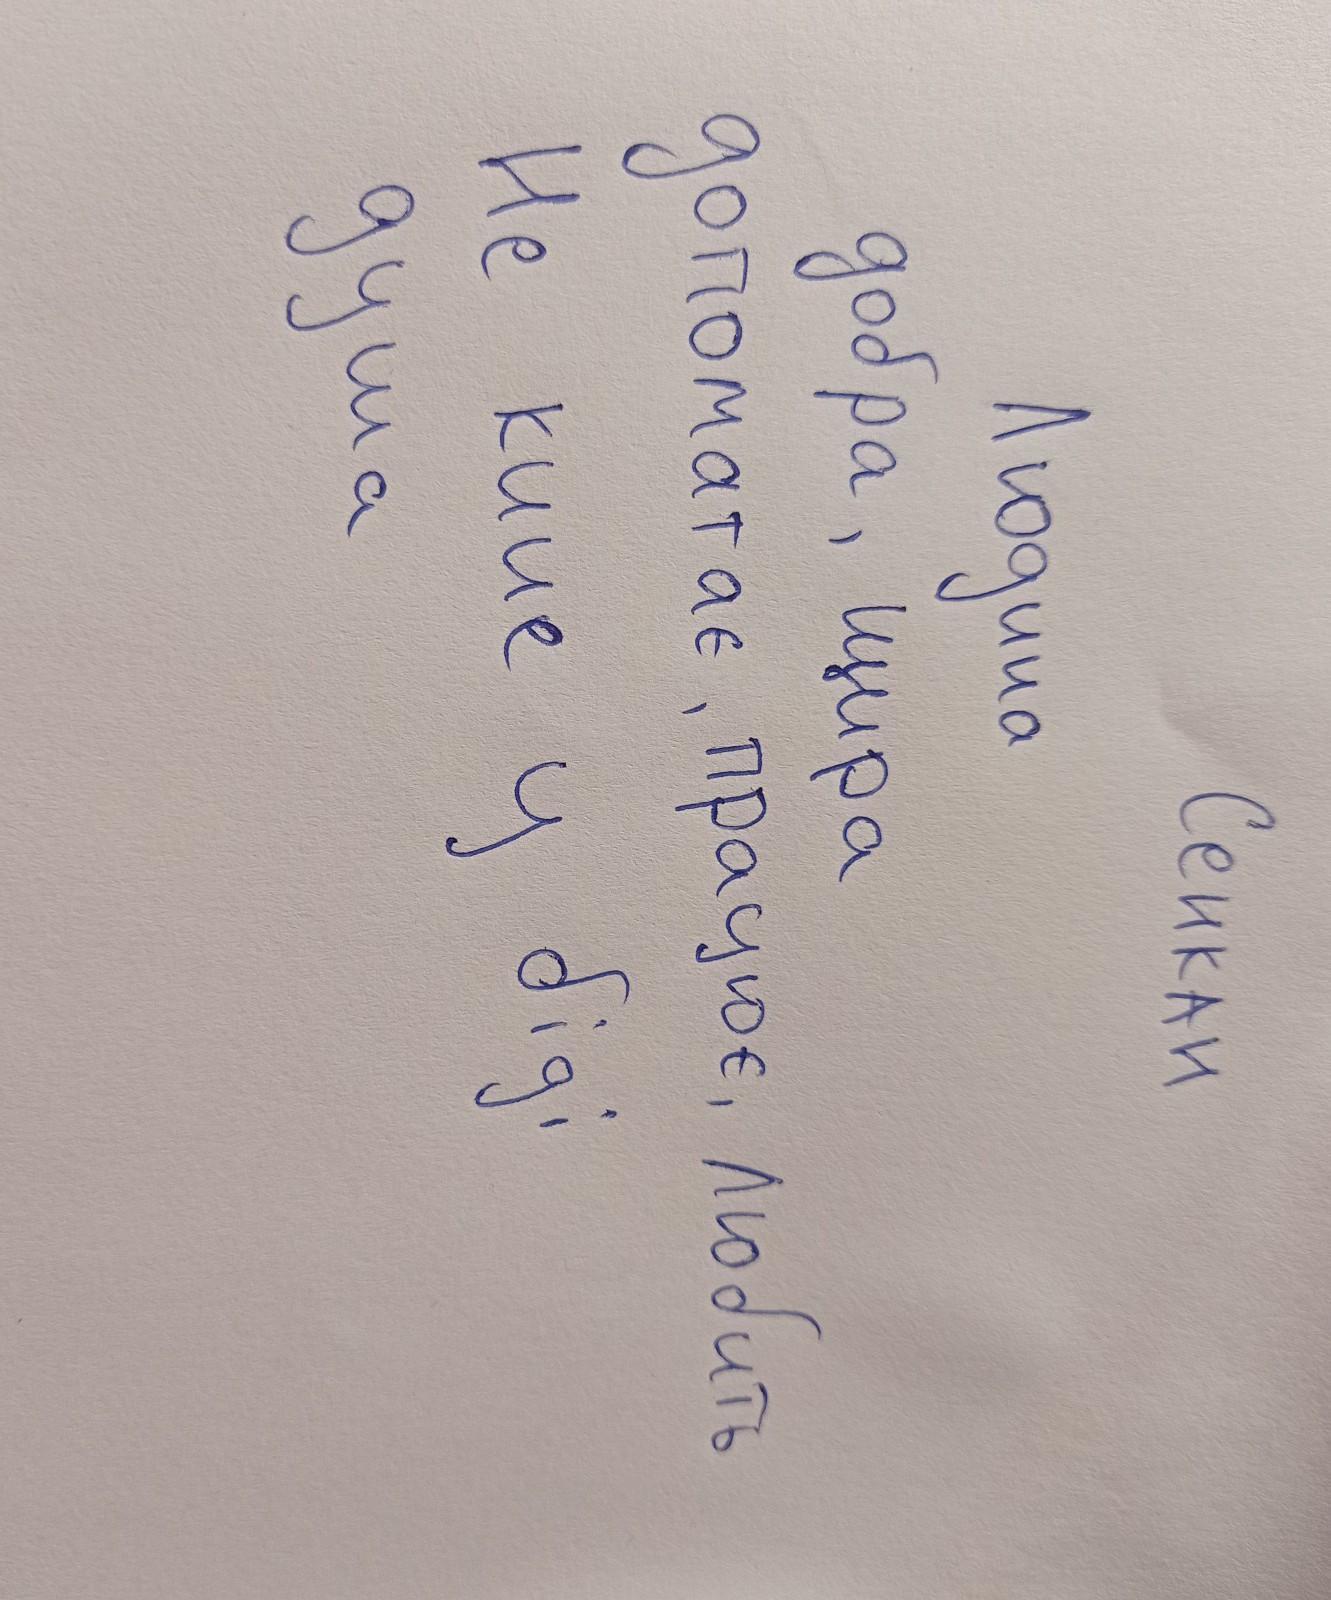 Сенкан
Людина
добра, щира
допомагає, працює, любить
Не кине у біді
душа